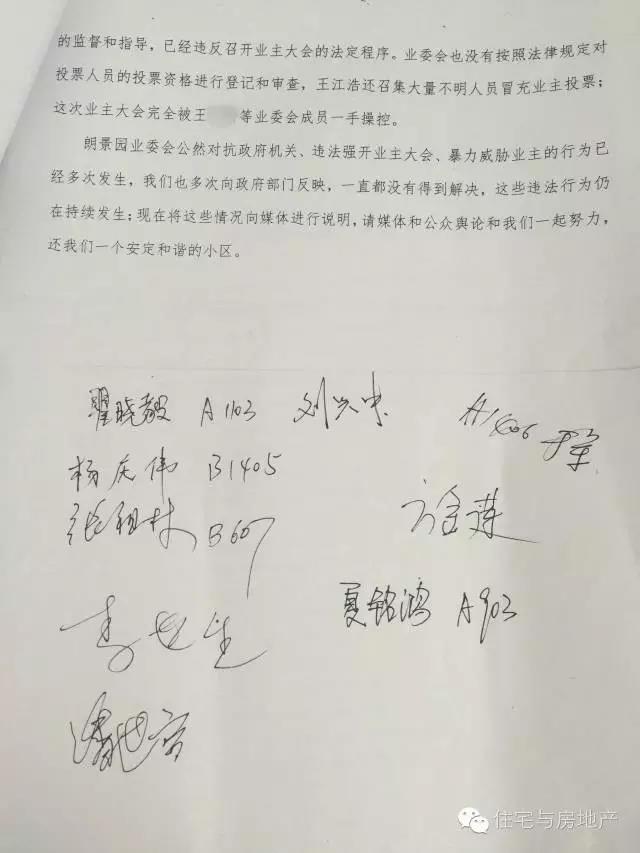 的监督和指导，已经违反召开业主大会的法定程序。业委会也没有按照法律规定对
投票人员的投票资格进行登记和审查，王江浩还召集大量不明人员冒充业主投票；
这次业主大会完全被王 等业委会成员一手操控。
朗景园业委会公然对抗政府机关、违法强开业主大会、暴力威胁业主的行为已
经多次发生，我们也多次向政府部门反映，一直都没有得到解决，这些违法行为仍
在持续发生；现在将这些情况向媒体进行说明，请媒体和公众舆论和我们一起努力，
还我们一个安定和谐的小区。
瞿晓毅 A1103 刘兴中 A1406
杨庆伟 B1405
张祖林 B607
夏铭鸿 A903
住宅与房地产